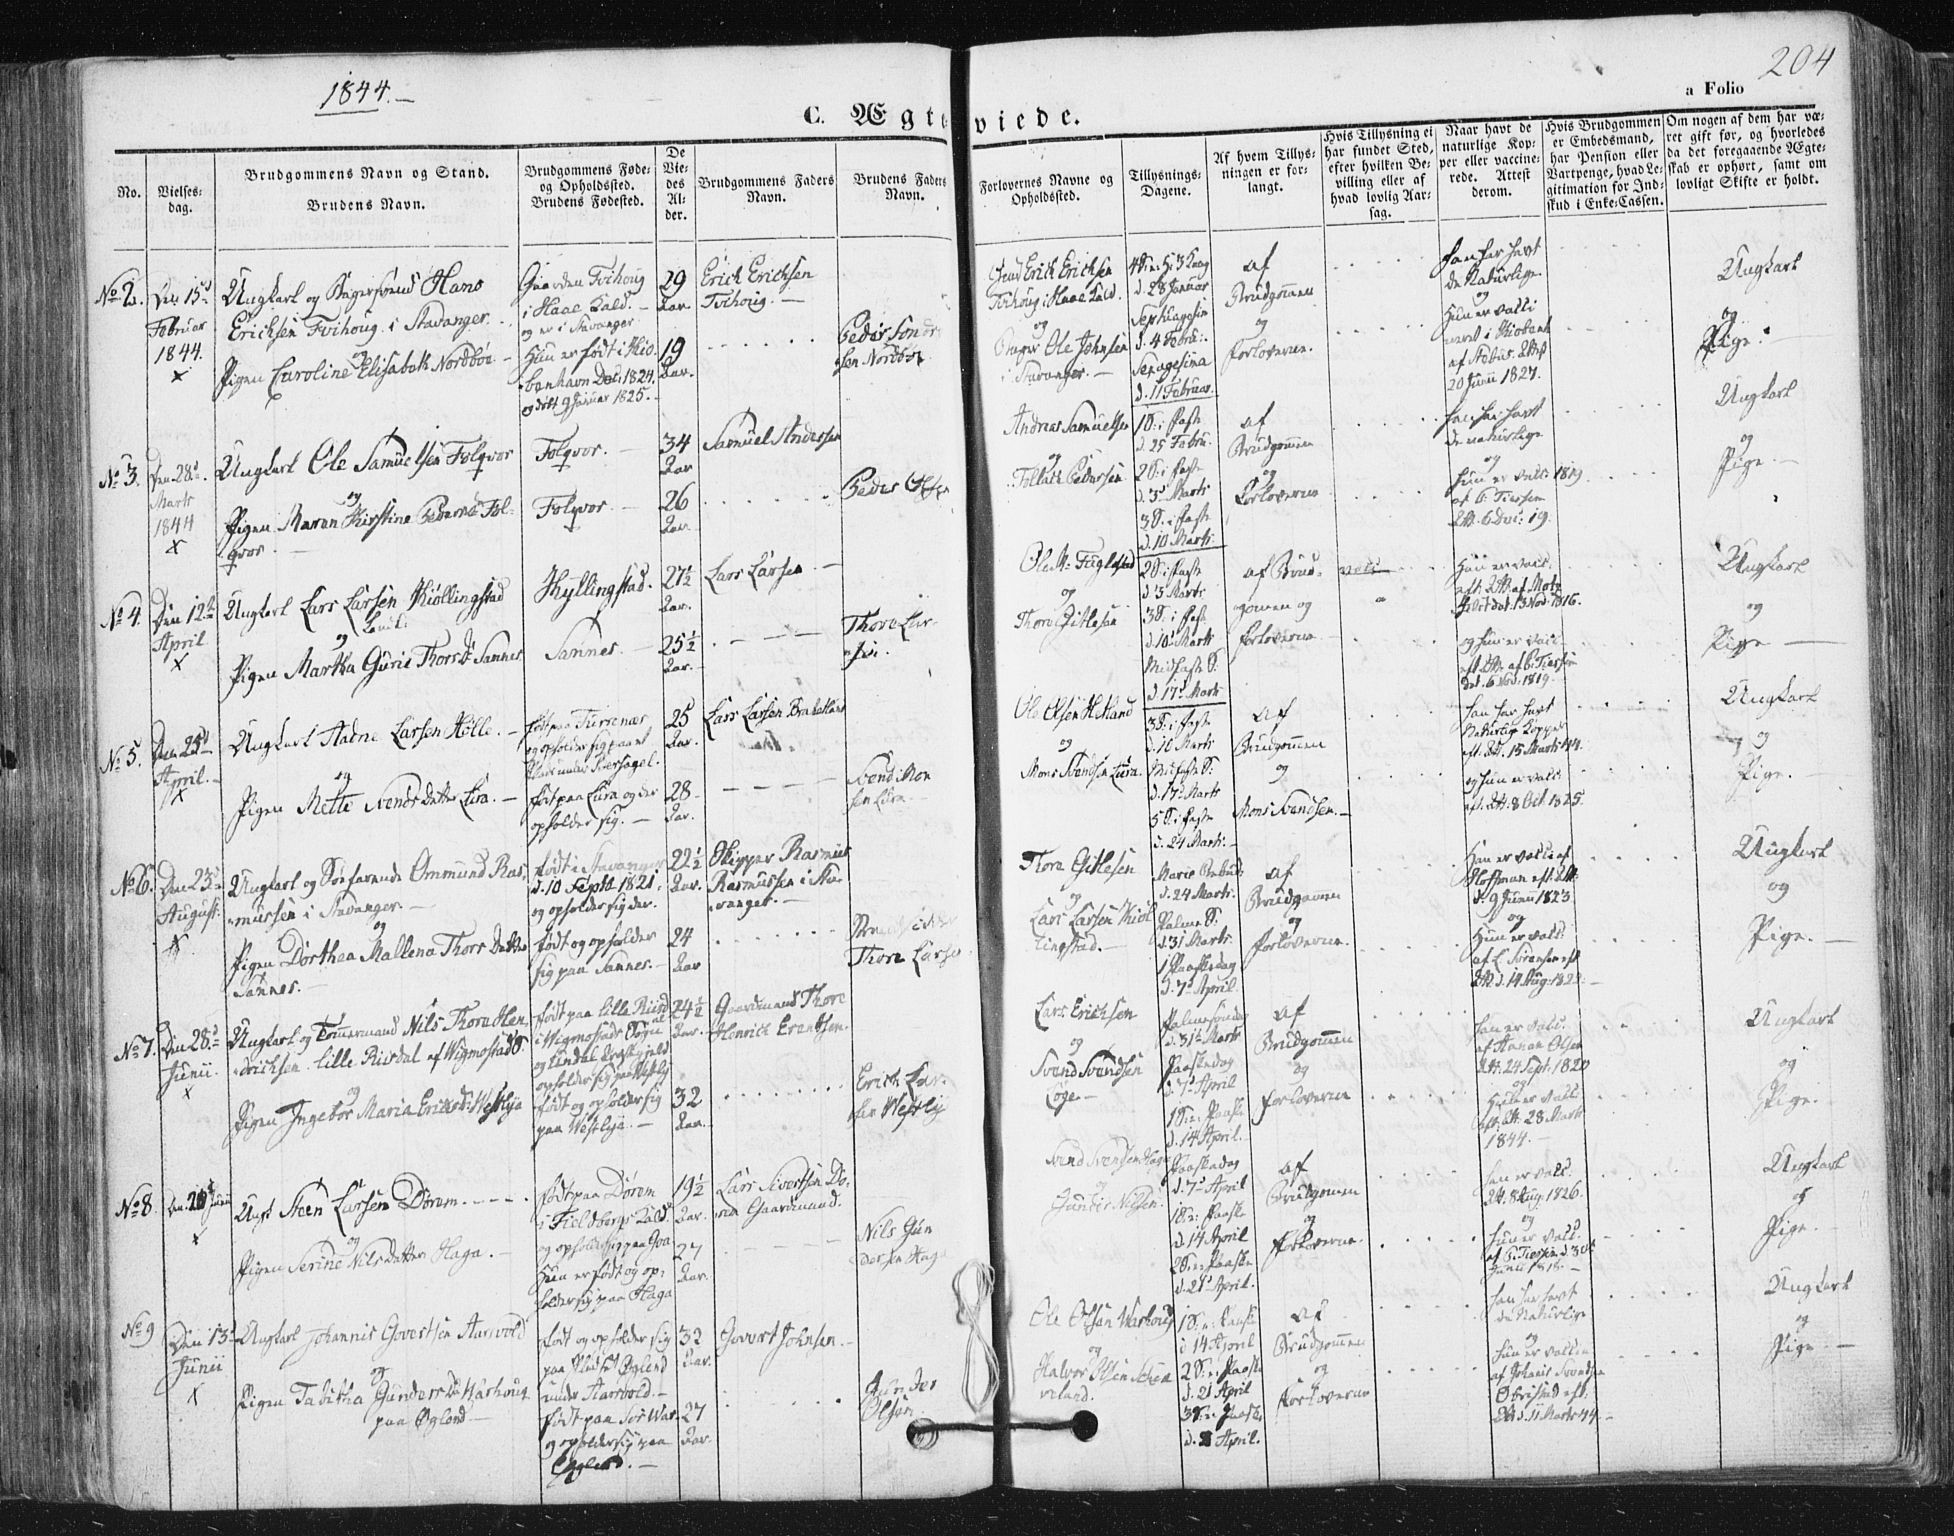 1844.—
204
a Folio
C. Ægteviede.
No.
Vielses-
dag.
Brudgommens Navn og Stand.
Brudens Navn.
Brudgommens Føde-
og Opholdssted.
Brudens Fødested.
De
Vie-
des
Al-
der.
Brudgommens Faders
Navn.
Brudens Faders
Navn.
Forlovernes Navne og
Opholdssted.
Tillysnings-
Dagene.
Af hvem Tillys-
ningen er for-
langt.
Hvis Tillysning ei
har fundet Sted,
efter hvilken Be-
villing eller af
hvad lovlig Aar-
sag.
Naar havt de
naturlige Kop-
per eller vaccine-
rede. Attest
derom.
Hvis Brudgommen
er Embedsmand,
har Pension eller
Vartpenge, hvad Le-
gitimation for Ind-
skud i Enke-Cassen.
Om nogen af dem har væ-
ret gift før, og hvorledes
da det foregaaende Ægte-
skab er ophørt, samt om
lovligt Skifte er holdt.
No 2.
Den 15d
Februar
1844.
x
Ungkarl og Bagersvend Hans
Erichsen Tvihoug i Stavanger
og
Pigen Caroline Elisabeth Nordbøe
Gaarden Tvihoug
i Haae Gield.
og er i Stavanger
Hun er født i Kio-
benhavn Dec: 1824.
og døbt 9 Januar 1825.
29
Aar.
19
Aar.
Erich Erichsen
Tvihoug.
Erich Erichsen
Tvihoug i Haae Gield.
og
Bager Ole Johnsen
i Stavanger.
d. 28 Januar
Septuagesim
d. 4 Febru:
Sexagesima
d. 11 Februar.
af
Brudgommen
og
Forloverne.
han har havt
de Naturlige
og
Hun er vacci
neret i Kiobenh
20 Junii 1827.
Ungkarl
og
Pige.
No 3.
Den 28d
Marts
1844
x
Ungkarl Ole Samuelsen Folqvor
og
Pigen Maren Kirstine Pedersd: Fol-
qvor.
Folqvor.
Folqvor
34
Aar
26
Aar.
Samuel Andersen
Peder
Andreas Samuelsen
og
Tollak Pedersen
1 S: i Faste
d. 25 Febru.
2 S: i Faste
d. 3d Marts
3 S. i Faste
d. 10 Marts.
af
Brudgommen
og
Forloverne
han har havt
de naturlige
og
hun er vacc: 1819
Att. 6 Dec: 19.
Ungkarl
og
Pige.
No 4.
Den 12te
April
x
Ungkarl Lars Larsen Kiøllingstad
og
Pigen Martha Gurie Thorsd: Sannes
Kyllingstad.
Sannes.
27½
Aar.
25½
Aar.
Lars Larsen
Thore Lar-
sen.
Ole M: Fuglestad
og
Thore Gitlesen
2 S: i Faste
d. 3 Marts
3 S: i Faste
d. 10d Marts
Midfaste S.
d. 17d Marts
af Brud-
gommen og
Forloverne
Han er vacc.
eft: Att. af Motz
13 Nov: 1816.
og hun er vacc.
6 Nov: 1819.
Ungkarl
og
Pige
No 5.
Den 25d
April.
x
Ungkarl Aadne Larsen Hølle.
og
Pigen Mette Svendsdatter Lura.
født paa
og opholder sig paa
født paa Lura og der
opholder sig.
25
Aar.
28
Aar.
Lars Larsen
Svend Mon
sen Lura.
Ole Olsen Hetland
og
Mons Svendsen Lura.
3 S: i Faste
d. 10 Marts
Midfaste S:
d. 17d Marts
5 S: i Faste
d. 24 Marts.
Af
Brudgommen
og
Mons Svendsen.
han har havt
Naturlige Kopper
eft. Att. 15 Marts 44.
og hun er vacc.
eft. Att. 8 Oct. 1825.
Ungkarl
og
Pige.
No 6.
Den 23d
August
Ungkarl og Søefarende Ommund Ras-
mussen i Stavanger.
og
Pigen Dorthea Mallena Thors Datter
Sannes.
født i Stavanger
d. 10 Septb 1821.
og opholder sig der.
født og opholder
sig paa Sannes.
22½
Aar.
24
Aar
Skipper Rasmus
Rasmussen i Sta-
vanger.
Thore Larsen
Thore Gitlesen
og
Lars Larsen Kiøl
lingstad.
Marie Bebud:
d. 24 Marts.
Palme S:
d. 31 Marts.
1 Paaskedag
d. 7d April.
af
Brudgommen
og
Forloverne.
Han er vacc: af
Hoffman eft. Att.
d. 9 Junii 1823
og
Hun er vacc:
af L Sørensen eft.
Att. d. 14 Aug: 1822.
Ungkarl
og
Pige.
No 7.
Den 28d
Junii
x
Ungkarl og Tømermand Nils Thore Hen-
drichsen lille Riisdal af Wigmostad S.
og
Pigen Ingebor Maria Ericksd: Westlye
født paa lille Riisd
i Wigmostads Sogn
opholder sig paa Westly
født og opholder sig
paa Westlye.
24½
Aar.
32
Aar.
Gaardmand Thore
Henrich
Erich Lar-
sen Westly
Lars Erichsen
og
Svend Svendsen
Palmesøndag
d. 31te Marts
Paaskedag
d. 7d April
1 S: e: Paaske
d. 14 April.
af
Brudgommen
og
Forloverne
han er vacc.
Att. 24 Sept. 1820
og
Hun er vacc.
eft. Att. 28 Marts
1844.
Ungkarl
og
Pige.
No 8.
Den Junii
x
Ungk Steen Larsen Dørum.
og
Pigen Serine Nils Datter Haga.
født paa Dørum
i Fieldbergs Gield
og opholder sig paa Goa
Hun er født og op-
holder sig paa Haga
19½
Aar.
27
Aar.
Lars Sivertsen Dø-
rum Gaardmand.
Nils Gun
dersen Haga
Svend Svendsen Haga
og
Gunder Nilsen
Paaskedag
d. 7d April
1 S: e: Paaske
d. 14 April
2 S: e: Paaske
d. 21d April.
af
Brudgommen
og
Forloverne.
han er vacc.
Att. 8 Aug: 1826.
og
hun er vacc.
Junii 1818.
Ungkarl
og
Pige.
No 9
Den 13d
Junii
x
Ungkarl Johannis Govertsen Aarsvold
og
Pigen Tabitha Gundersd: Warhoug
paa Øglend
født og opholder sig
paa Pladset Øglend
under Aarsvold.
født paa War-
og opholder sig paa
Øglend.
32
Aar.
27
Aar.
Govert Johnsen.
Gunder
Olsen.
Ole Olsen Warhoug
og
Halvor Olsen
1 S: e: Paaske
d 14 April
2 S: e: Paaske
d. 21 April
3 S: e: Paaske
April.
af
Brudgommen
og
Forloverne
han har havt
de Naturlige
og
hun er
Att. d. 11 Marts 44.
Ungkarl
og
Pige.